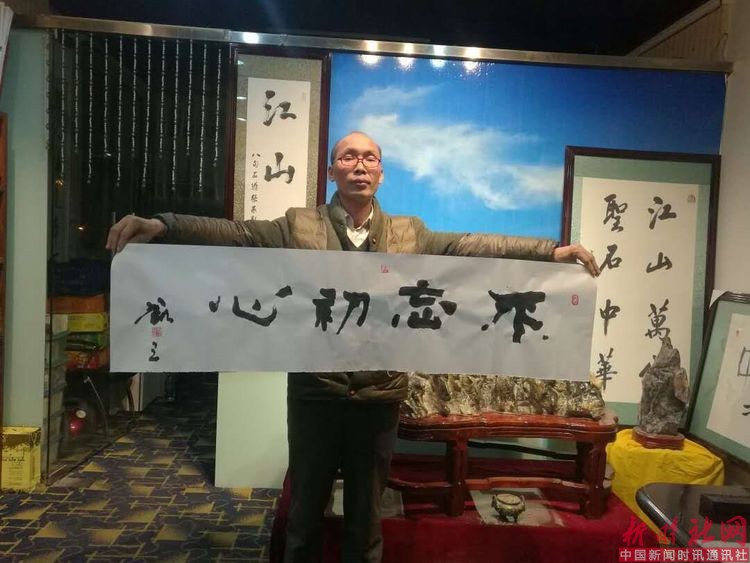 不忘初心
江山
江山萬
聖石中華
中国新闻时讯通讯社